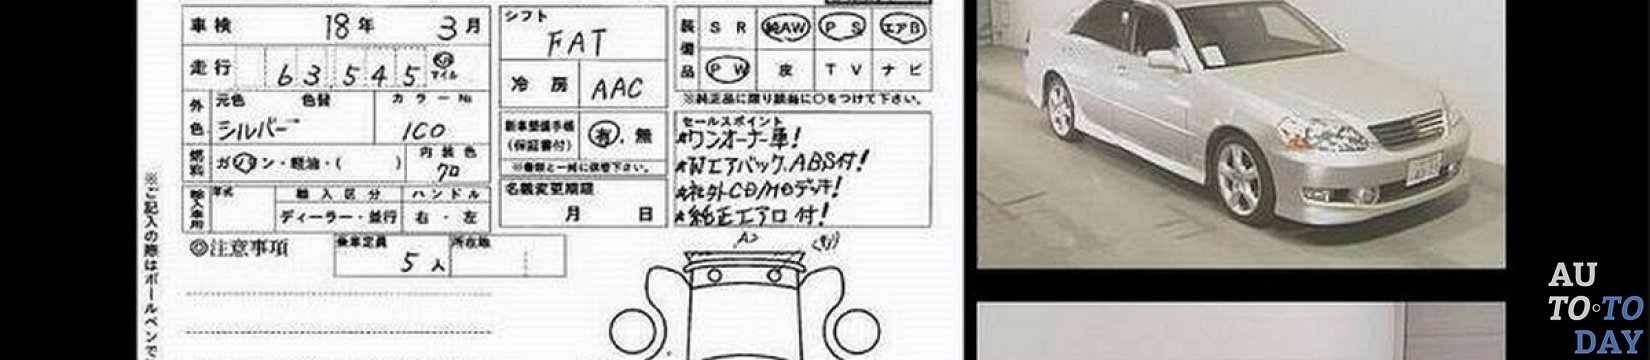 車検 18年 3月
走行 63,545 km マイル
外色 元色 色替 カラーNo
シルバー 1C0
燃料 ガソリン・軽油・( ) 内装色
クロ
輸入車用 年式 輸入区分 ハンドル
ディーラー・並行 右・左
◎注意事項 乗車定員 所在地
5人
シフト
FAT
冷房 AAC
新車整備手帳
(保証書付) 有・無
※書類と一緒に保管下さい。
名義変更期限
月 日
装備品 SR 純AW PS エアB
PW 皮 TV ナビ
※純正品に限り該当に○をつけて下さい。
セールスポイント
★ワンオーナー車!
★Wエアバック.ABS付!
★社外CD/MDデッキ!
★純正エアロ付!
A2
※ご記入の際はボールペンで
AU
TO•TO
DAY